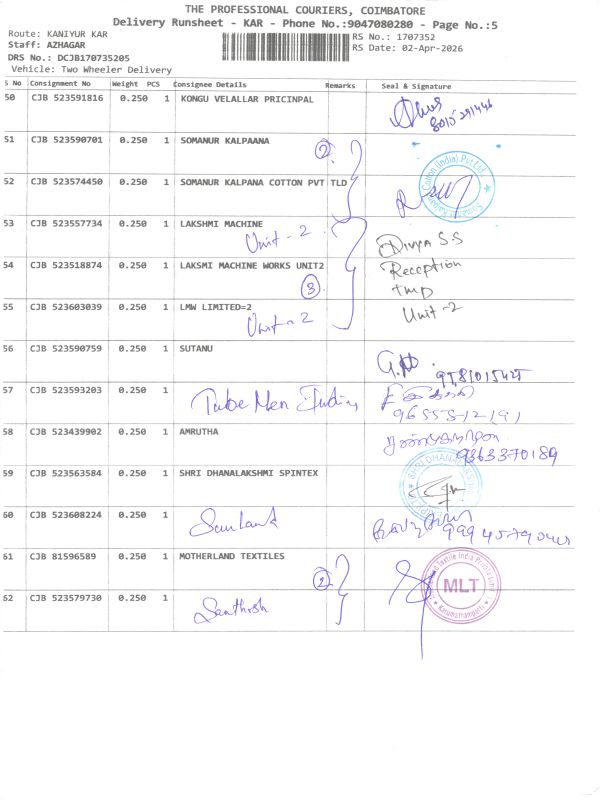 THE PROFESSIONAL COURIERS, COIMBATORE
Delivery Runsheet - KAR - Phone No.:9047080280 - Page No.:5
Route: KANIYUR KAR
RS No.: 1707352
Staff: AZHAGAR
RS Date: 02-Apr-2026
DRS No.: DCJB170735205
Vehicle: Two Wheeler Delivery
S No Consignment No Weight PCS Consignee Details Remarks Seal & Signature
50 CJB 523591816 0.250 1 KONGU VELALLAR PRICINPAL
51 CJB 523590701 0.250 1 SOMANUR KALPAANA
2
52 CJB 523574450 0.250 1 SOMANUR KALPANA COTTON PVT TLD
53 CJB 523557734 0.250 1 LAKSHMI MACHINE
Unit - 2
Divya S.S
54 CJB 523518874 0.250 1 LAKSMI MACHINE WORKS UNIT2
Reception
3
TMD
55 CJB 523603039 0.250 1 LMW LIMITED=2
Unit - 2
Unit - 2
56 CJB 523590759 0.250 1 SUTANU
57 CJB 523593203 0.250 1 Tube Men India
58 CJB 523439902 0.250 1 AMRUTHA
9363370189
59 CJB 523563584 0.250 1 SHRI DHANALAKSHMI SPINTEX
60 CJB 523608224 0.250 1
61 CJB 81596589 0.250 1 MOTHERLAND TEXTILES
2
MLT
62 CJB 523579730 0.250 1 Santhosh